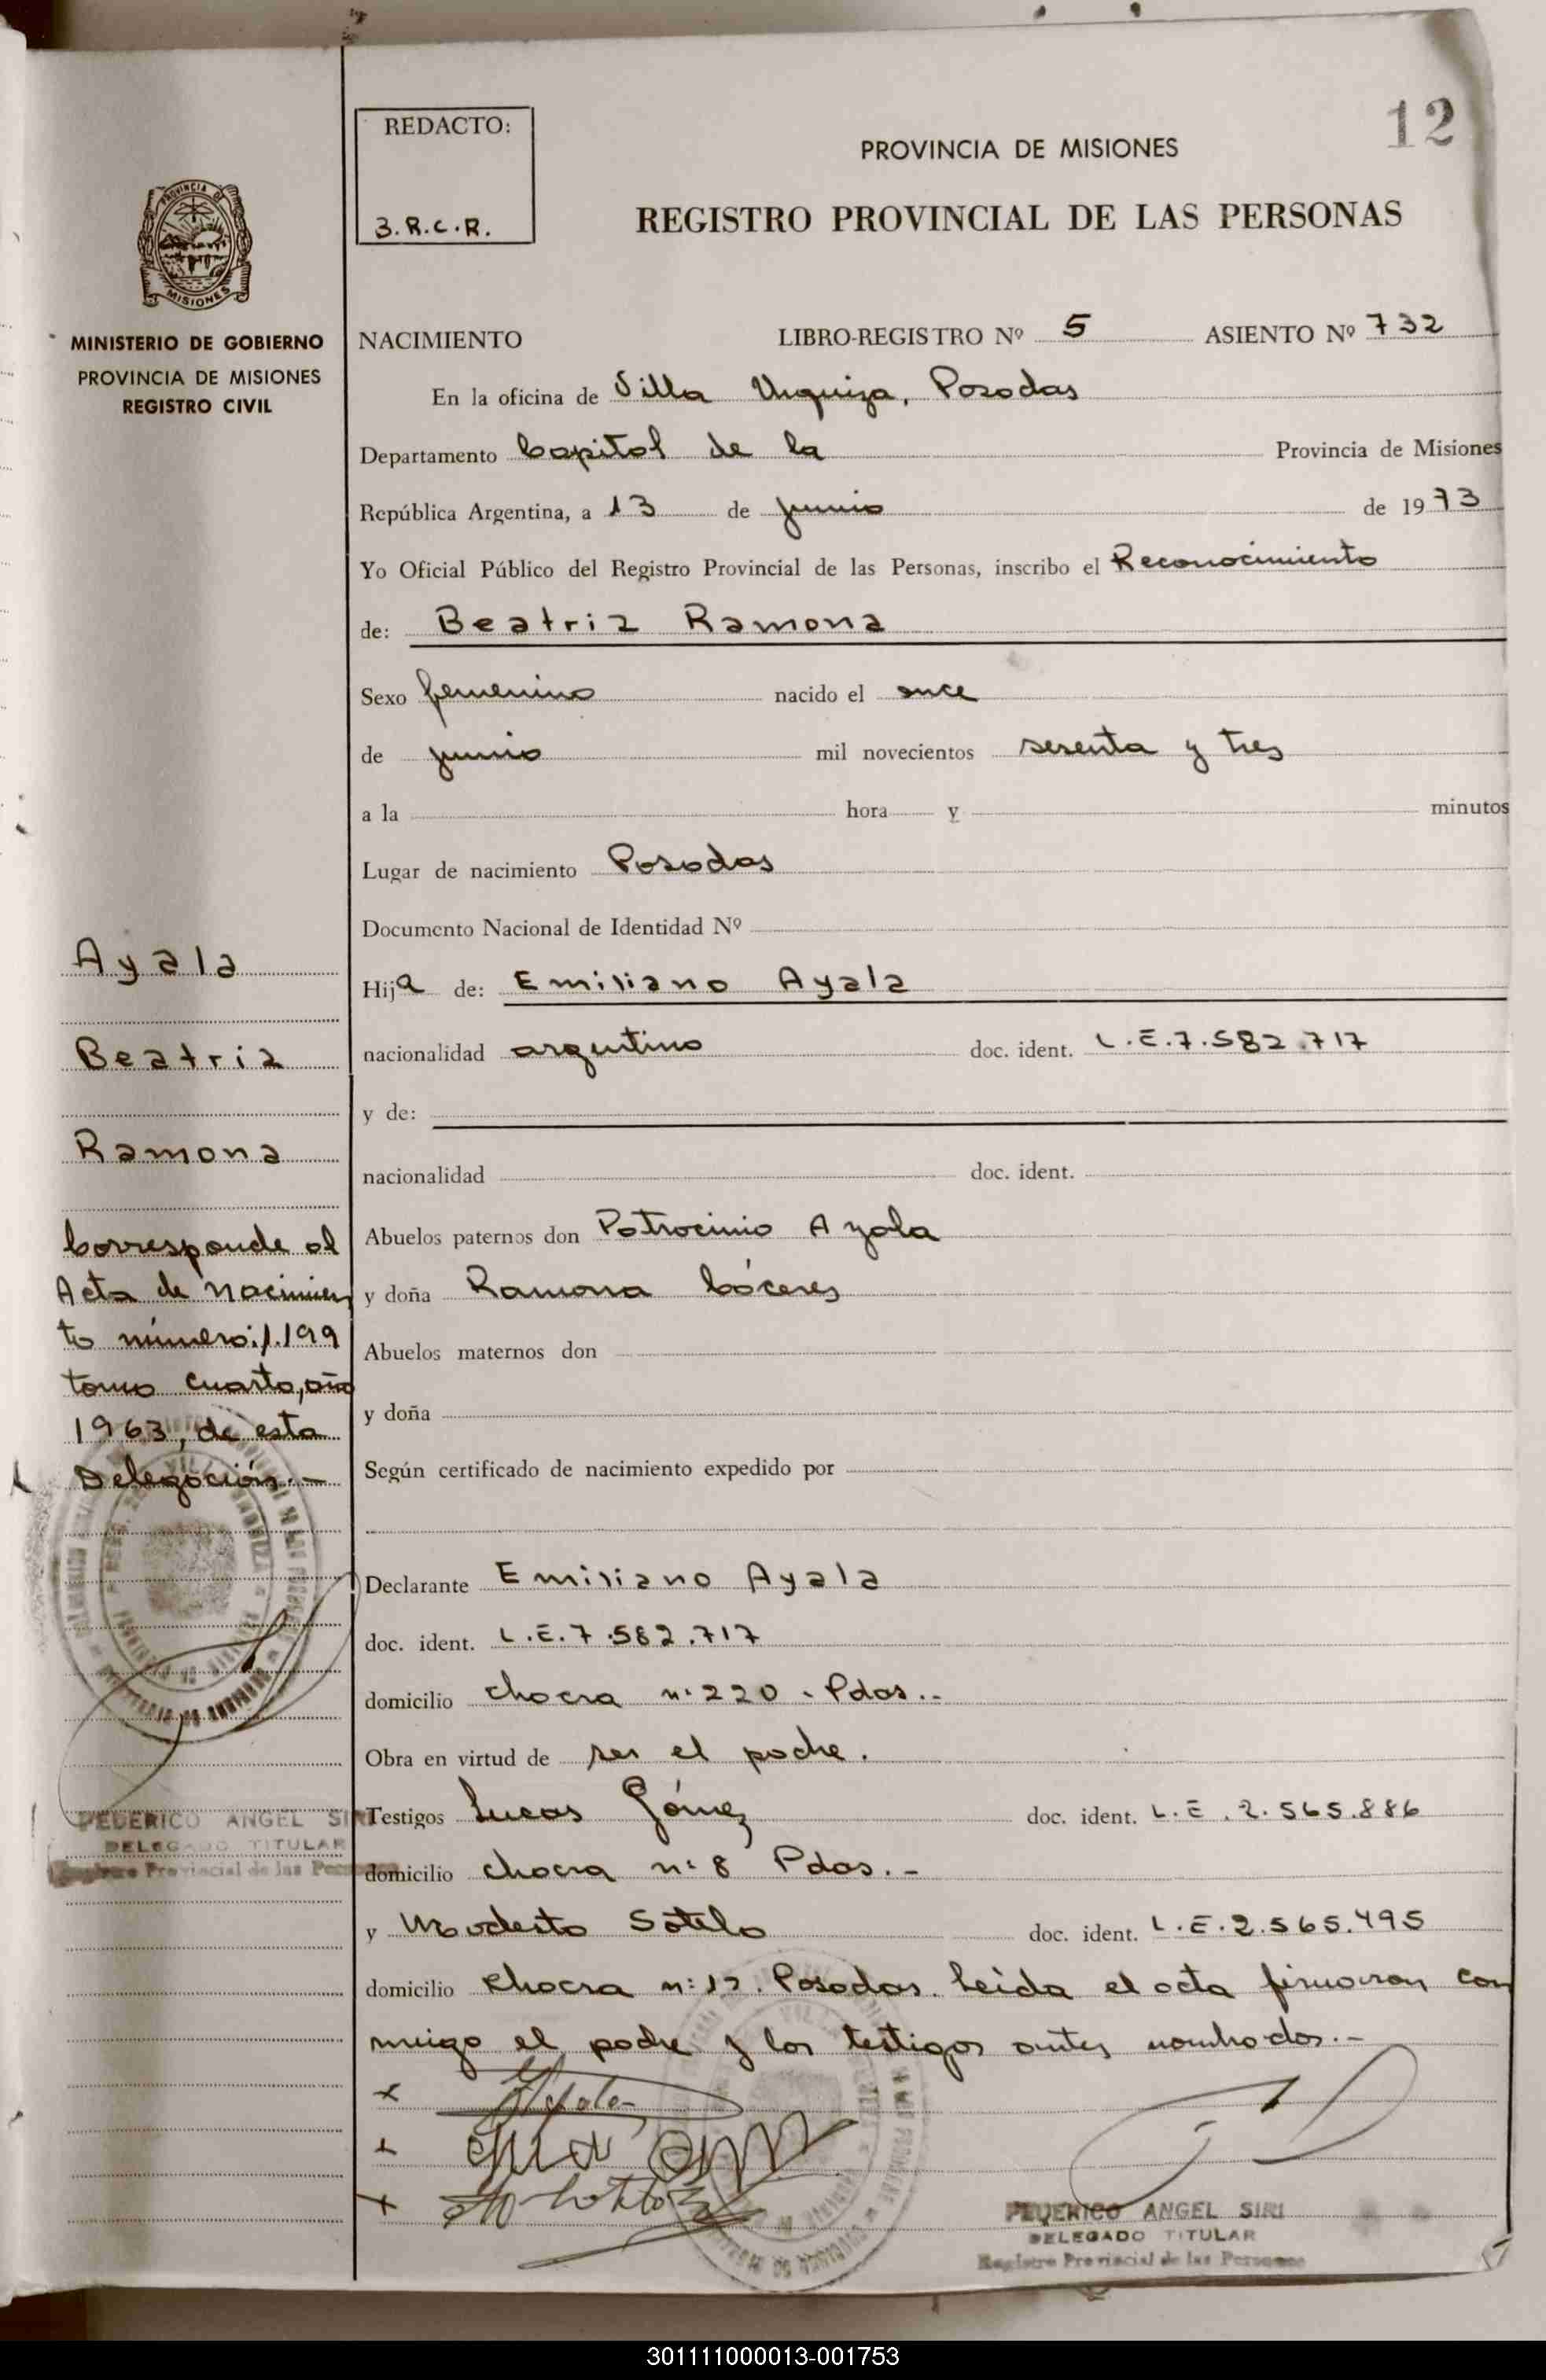 12
REDACTO:
3.R.C.R.
PROVINCIA DE MISIONES
REGISTRO PROVINCIAL DE LAS PERSONAS
PROVINCIA DE
MISIONES
MINISTERIO DE GOBIERNO
PROVINCIA DE MISIONES
REGISTRO CIVIL
NACIMIENTO LIBRO-REGISTRO Nº 5 ASIENTO Nº 732
En la oficina de Villa Urquiza, Posadas
Departamento Capital de la Provincia de Misiones
República Argentina, a 13 de junio de 1973
Yo Oficial Público del Registro Provincial de las Personas, inscribo el Reconocimiento
de: Beatriz Ramona
Sexo femenino nacido el once
de junio mil novecientos sesenta y tres
a la hora y minutos
Lugar de nacimiento Posadas
Documento Nacional de Identidad Nº
Hija de: Emiliano Ayala
nacionalidad argentino doc. ident. L.E.7.582.717
y de:
nacionalidad doc. ident.
Abuelos paternos don Patrocinio Ayala
y doña Ramona Cáceres
Abuelos maternos don
y doña
Según certificado de nacimiento expedido por
Declarante Emiliano Ayala
doc. ident. L.E.7.582.717
domicilio chacra n:220 - Pdas..-
Obra en virtud de ser el padre.
Testigos Lucas Gómez doc. ident. L.E.2.565.886
domicilio chacra n:8 Pdas.-
y Modesto Sotelo doc. ident. L.E.2.565.495
domicilio chacra n:12. Posadas. Leída el acta firmaron con
migo el padre y los testigos antes nombrados.-
Ayala
Beatriz
Ramona
Corresponde al
Acta de nacimien
to número:1.199
tomo cuarto, año
1963, de esta
Delegación.-
FEDERICO ANGEL SIRI
DELEGADO TITULAR
Registro Provincial de las Personas
x
x
x
FEDERICO ANGEL SIRI
DELEGADO TITULAR
Registro Provincial de las Personas
301111000013-001753